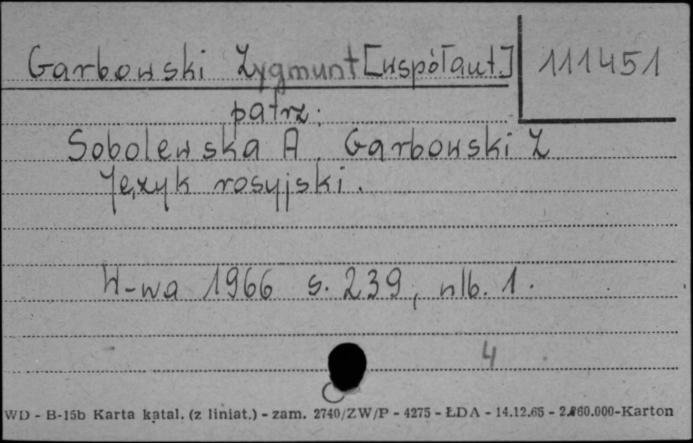 Garbowski Zygmunt [współaut.]
111451
patrz:
Sobolewska A, Garbowski Z
Język rosyjski.
W-wa 1966 s. 239, nlb. 1.
4
WD - B-15b Karta katal. (z liniat.) - zam. 2740/ZW/P - 4275 - ŁDA - 14.12.65 - 2.860.000-Karton